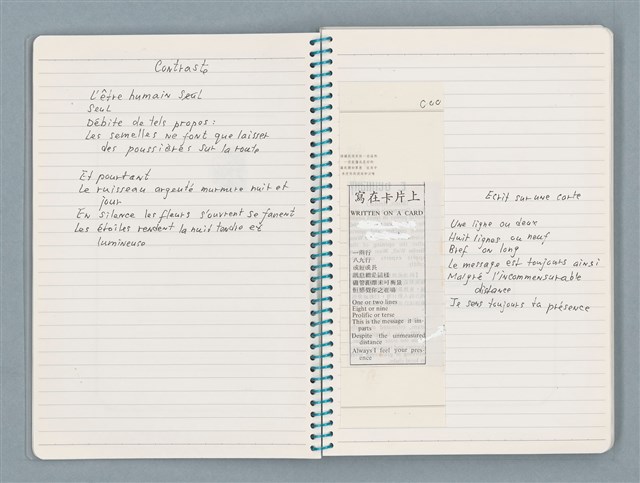 Contraste
L'être humain seul
Seul
Débite de tels propos :
Les semelles ne font que laisser
des poussières sur la route
Et pourtant
Le ruisseau argenté murmure nuit et
jour
En silence les fleurs s'ouvrent se fanent
Les étoiles rendent la nuit tendre et
lumineuse
寫在卡片上
WRITTEN ON A CARD
一兩行
八九行
或短或長
One or two lines
Eight or nine
Prolific or terse
This is the message it im-
parts
Despite the unmeasured
distance
Always I feel your pres-
ence
Ecrit sur une carte
Une ligne ou deux
Huit lignes ou neuf
Bref ou long
Le message est toujours ainsi
Malgré l'incommensurable
distance
Je sens toujours ta présence